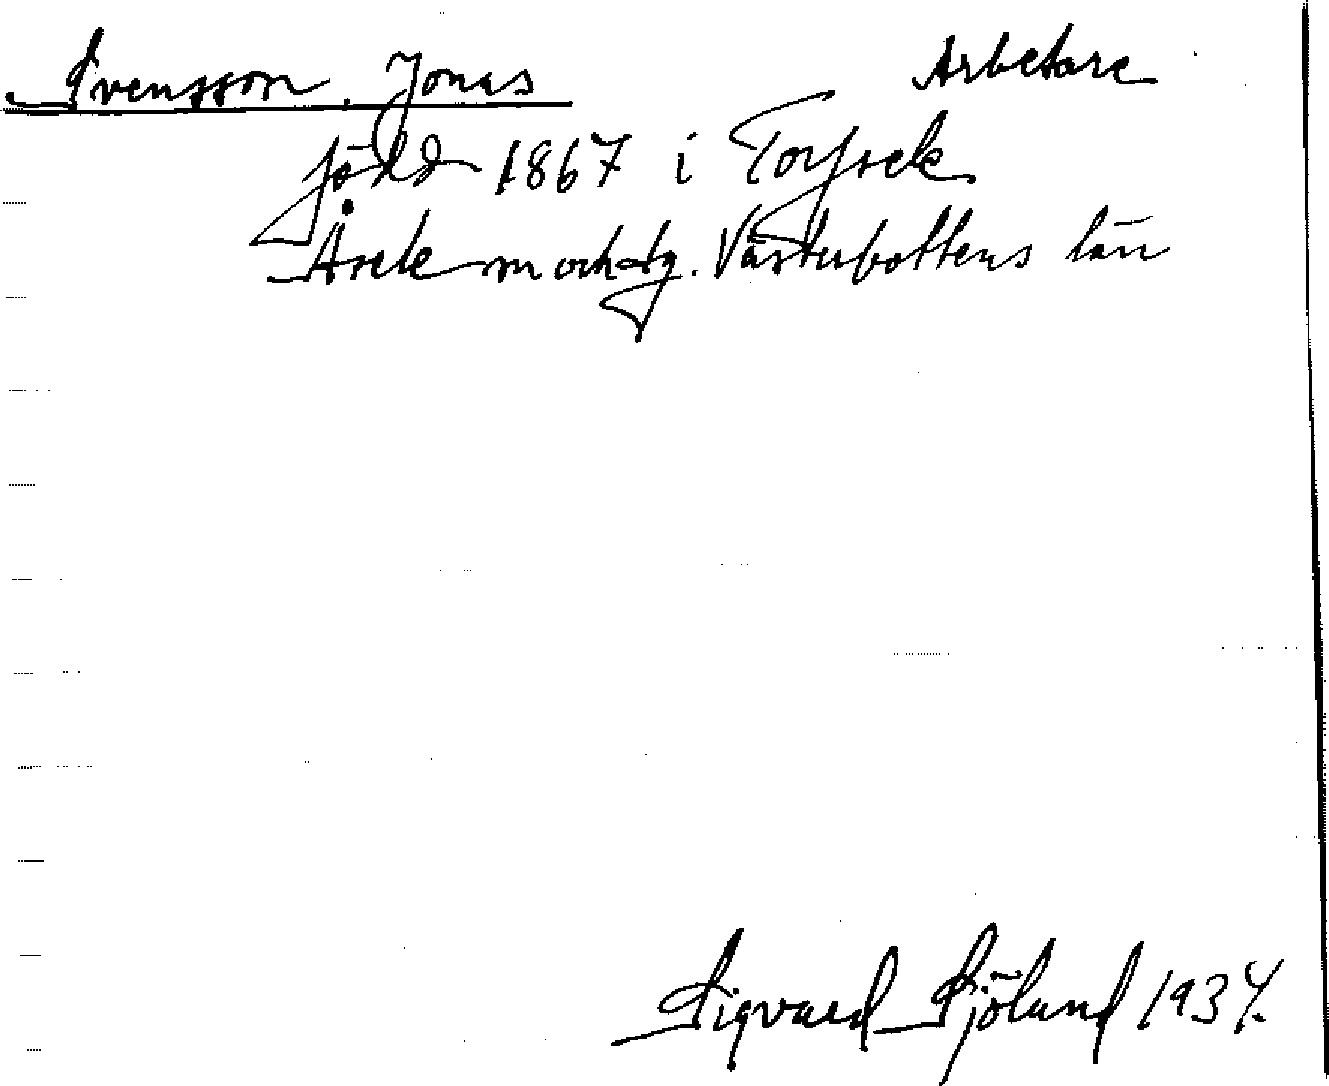 Svensson, Jonas Arbetare
född 1867 i Torfsele
Åsele m och tg. Västerbottens län
Sigvard Sjölund 1934.